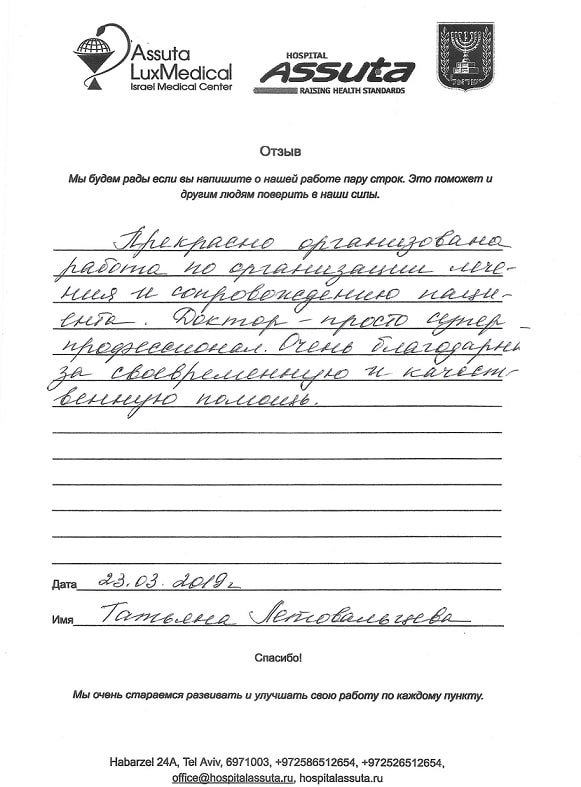 Assuta
LuxMedical
Israel Medical Center
HOSPITAL
Assuta
RAISING HEALTH STANDARDS
Отзыв
Мы будем рады если вы напишите о нашей работе пару строк. Это поможет и
другим людям поверить в наши силы.
Прекрасно организована
работа по организации лече-
ния и сопровождению паци-
ента. Доктор - просто супер
профессионал. Очень благодарны
за своевременную и качест-
венную помощь.
Дата 23.03.2019г
Имя Татьяна
Спасибо!
Мы очень стараемся развивать и улучшать свою работу по каждому пункту.
Habarzel 24A, Tel Aviv, 6971003, +972586512654, +972526512654,
office@hospitalassuta.ru, hospitalassuta.ru